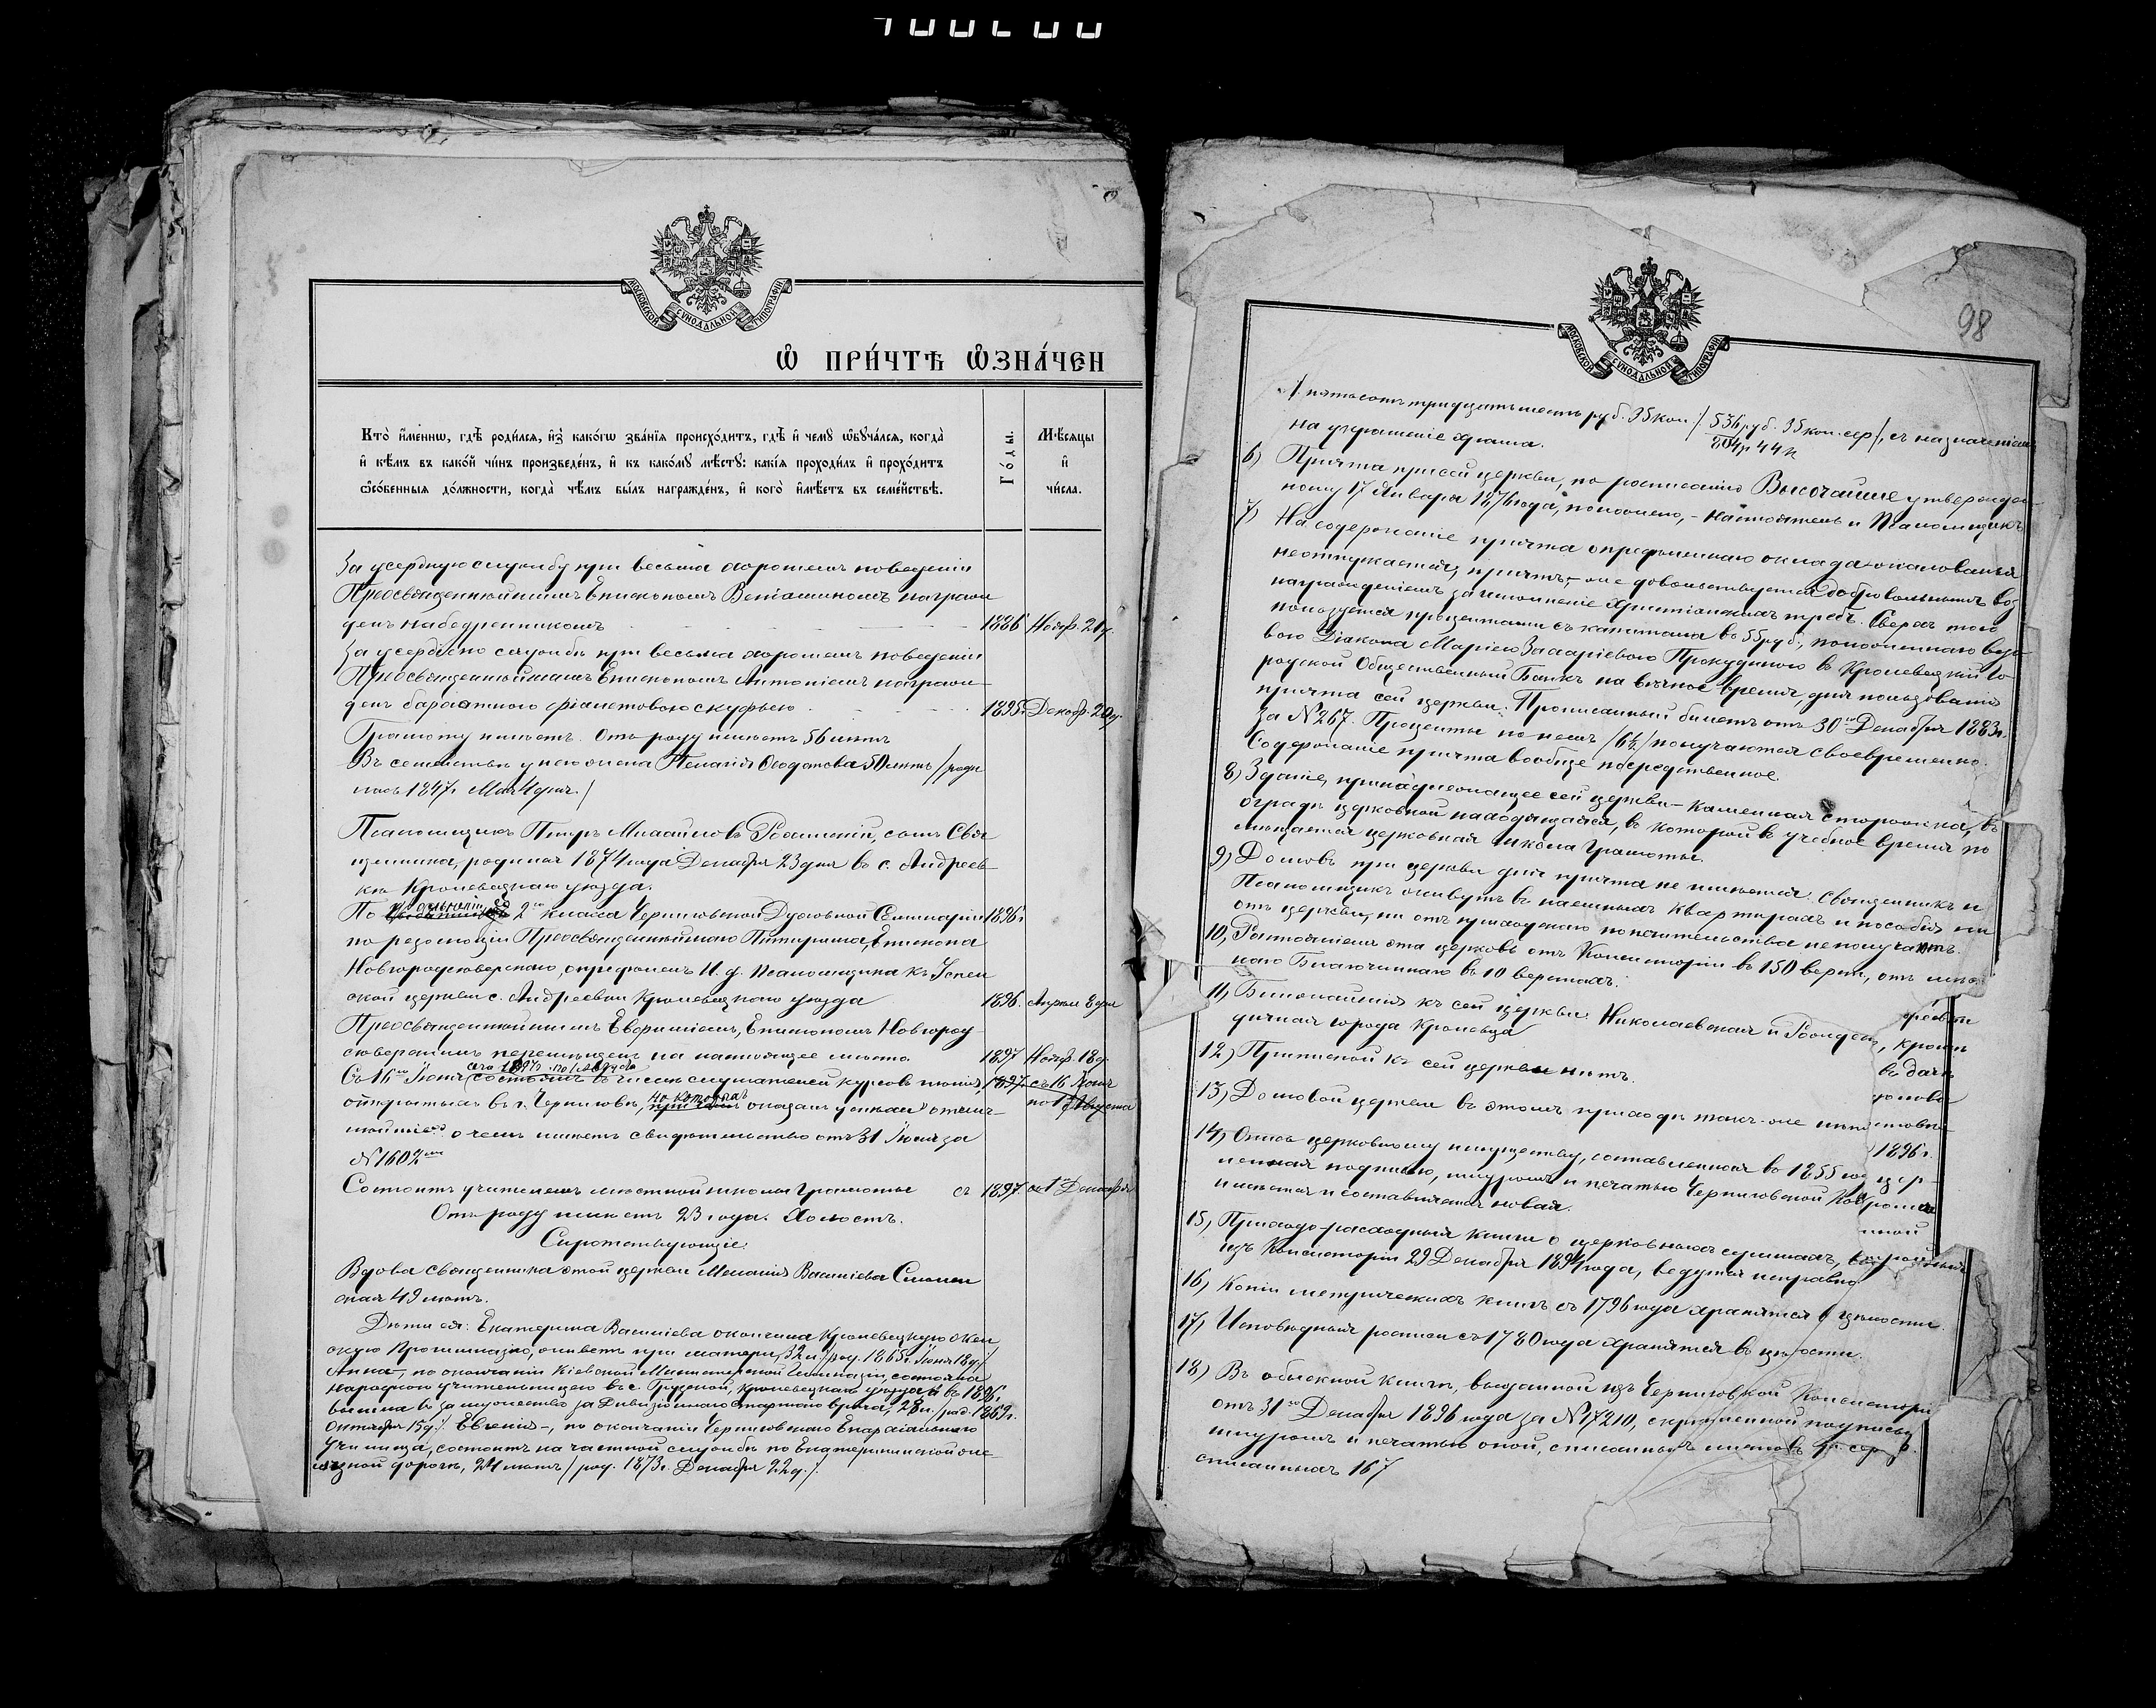 МОСКОВСКОЙ СѴНОДАЛЬНОЙ ТИПОГРАФІИ
Ѽ ПРИ́ЧТѢ ѼЗНА́ЧЕН
Кто̀ и҆́меннѡ, гдѣ̀ роди́лсѧ, и҆з̾ како́гѡ зва́нїѧ происхо́дитъ, гдѣ̀ и҆ чемꙋ̀ ѡ҆бꙋча́лсѧ, когда̀
и҆ кѣ́мъ въ како́й чи́нъ произведе́нъ, и҆ къ како́мꙋ мѣ́стꙋ: какі̑ѧ проходи́лъ и҆ прохо́дитъ
ѻ҆сѡ́бенныѧ до́лжности, когда̀ чѣ́мъ бы́лъ награжде́нъ, и҆ кого̀ и҆мѣ́етъ въ семе́йствѣ.
Го́ды.
Мѣ́сѧцы
и҆
чи́сла.
За усердную службу при весьма хорошемъ поведеніи
Преосвященнѣйшимъ Епископомъ Веніаминомъ награж
денъ набедренникомъ 1886 Нояб. 21д.
За усердную службу при весьма хорошемъ поведеніи
Преосвященнѣйшимъ Епископомъ Антоніемъ награж-
денъ бархатною фіолетовою скуфьею 1895г. Декабр. 20д.
Грамоту имѣетъ. Отъ роду имѣетъ 56 лѣтъ
Въ семействѣ у него жена Пелагія Ѳеодотова 50 лѣтъ /роди
лась 1847г. Мая 4 дня./
Псаломщикъ Петръ Михайловъ сынъ Свя
щенника, родился 1874 года Декабря 23 дня въ с. Андреев-
кѣ Кролевецкаго уѣзда.
По 2го класса Черниговской Духовной Семинаріи 1896г.
по резолюціи Преосвященнѣйшаго Питирима, Епископа
Новгородсѣверскаго, опредѣленъ И. д. псаломщика къ Успен
ской церкви с. Андреевки Кролевецкаго уѣзда 1896. Апрѣля 8 дня
Преосвященнѣйшимъ Евѳиміемъ, Епископомъ Новгород-
сѣверскимъ перемѣщенъ на настоящее мѣсто 1897 Нояб. 18д.
сего 1897г. по 1 Августа
Съ 16го Іюля состоялъ въ числѣ слушателей курсовъ пѣнія, 1897. съ 16 Іюля
на которыхъ по 1 Августа
открытыхъ въ г. Черниговѣ, оказалъ успѣхи „отлич-
о чемъ имѣетъ свидѣтельство отъ 31 Іюля за
Состоитъ учителемъ мѣстной школы грамоты съ 1897. съ 1 Декабря
Отъ роду имѣетъ 23 года. Холостъ.
Сиротствующіе:
Вдова священника этой церкви Меланія Василіева
49 лѣтъ.
Дѣти ея: Екатерина Василіева окончила Кролевецкую Жен
скую Прогимназію, живетъ при матери, 32 л. /род. 1865г. Іюня 18д./
Анна, по окончаніи Кіевской Министерской Гимназіи состояла
народною учительницею въ с. Грузской, Кролевецкаго уѣзда и въ 1896г.
вышла въ замужество за Дивизіоннаго старшаго врача, 28 л. /род. 1869г.
Октября 15д./ Евгенія, по окончаніи Черниговскаго Епархіальнаго
Училища, состоитъ на частной службѣ по Екатерининской же-
лѣзной дорогѣ, 24 лѣтъ /род. 1873г. Декабря 22д./.
МОСКОВСКОЙ СѴНОДАЛЬНОЙ ТИПОГРАФІИ
98
/. пятьсотъ тридцать шесть руб. 95 коп./ 536 руб. 95 коп. сер/, съ назначеніемъ
на украшеніе храма. 804р 44к
6) Причта при сей церкви, по росписанію Высочайше утвержден-
ному 17 Января 1876 года, положено, - настоятель и Псаломщикъ.
7) На содержаніе причта опредѣленнаго оклада жалованья
неотпускается, причтъ же довольствуется добровольнымъ воз
награжденіемъ за исполненіе Христіанскихъ требъ. Сверхъ того
пользуется процентами съ капитала въ 55 руб., положеннаго вдо-
вою Діакона Маріею Захаріевою Прокудиною въ Кролевецкій Го
родской Общественный Банкъ на вѣчное время, для пользованія
причта сей церкви. Прописанный билетъ отъ 30го Декабря 1883г.
за №267. Проценты по немъ /6%/ получаются своевременно.
Содержаніе причта вообще посредственное.
8) Зданіе, принадлежащее сей церкви - каменная сторожка, въ
оградѣ церковной находящаяся, въ которой въ учебное время по
мѣщается церковная школа грамоты.
9) Домовъ при церкви для причта не имѣется. Священникъ и
Псаломщикъ живутъ въ наемныхъ квартирахъ и пособія ни
отъ церкви, ни отъ приходскаго попечительства не получаютъ.
10, Разстояніемъ эта церковь отъ Консисторіи въ 150 верст., отъ мѣст
наго Благочиннаго въ 10 верстахъ.
11, Ближайшія къ сей церкви Николаевская и Рождест
дичная города Кролевца
12) Приписной къ сей церкви нѣтъ.
13) Домовой церкви въ этомъ приходѣ такъ-же
14) Опись церковному имуществу, составленная въ 1855 го
подписью, шнуромъ и печатью Черниговской
имѣется и составляется новая.
15) Приходо-расходныя книги о церковныхъ суммахъ,
изъ Консисторіи 29 Декабря 1894 года, ведутся исправно
16) Копіи метрическихъ книгъ съ 1796 года хранятся въ цѣлости.
17) Исповѣдныя росписи съ 1780 года хранятся въ цѣлости.
18) Въ обыскной книгѣ, выданной изъ Черниговской Консисторіи
отъ 31го Декабря 1896 года за №17210, скрѣпленной подписью
шнуромъ и печатью оной, списанныхъ листовъ
списанныхъ 167